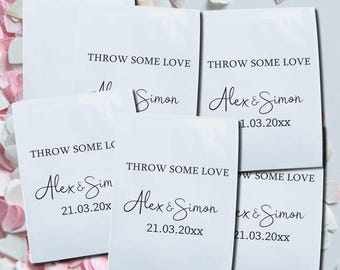 THROW SOME LOVE
Alex & Simon
THROW SOME LOVE
Alex & Simon
21.03.20xx
THROW SOME LOVE
Alex & Simon
21.03.20xx
THROW SOME LOVE
Alex & Simon
21.03.20xx
THROW SOME LOVE
Simon
21.03.20xx